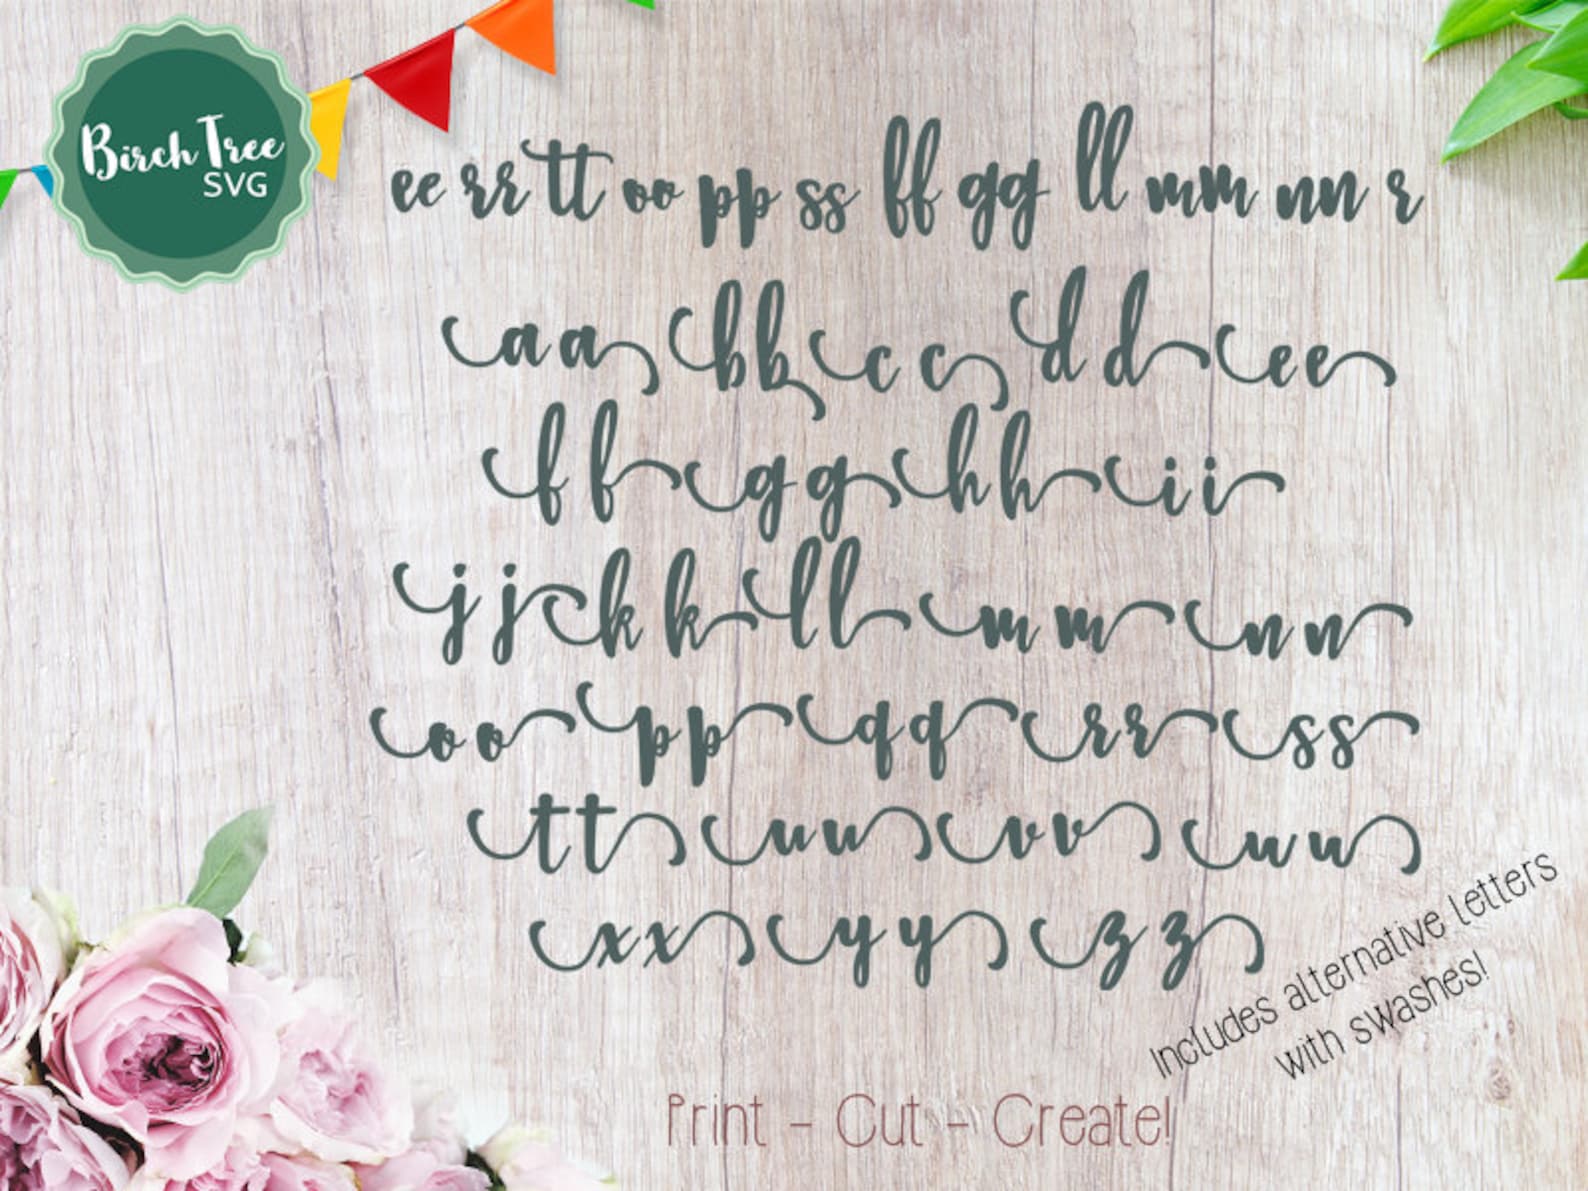 Birch Tree
SVG
ee rr tt oo pp ss ff gg ll mm nn r
aa bb cc dd ee
ff gg hh ii
jj kk ll mm nn
oo pp qq rr ss
tt uu vv ww
xx yy zz
Includes alternative letters
with swashes!
Print - Cut - Create!